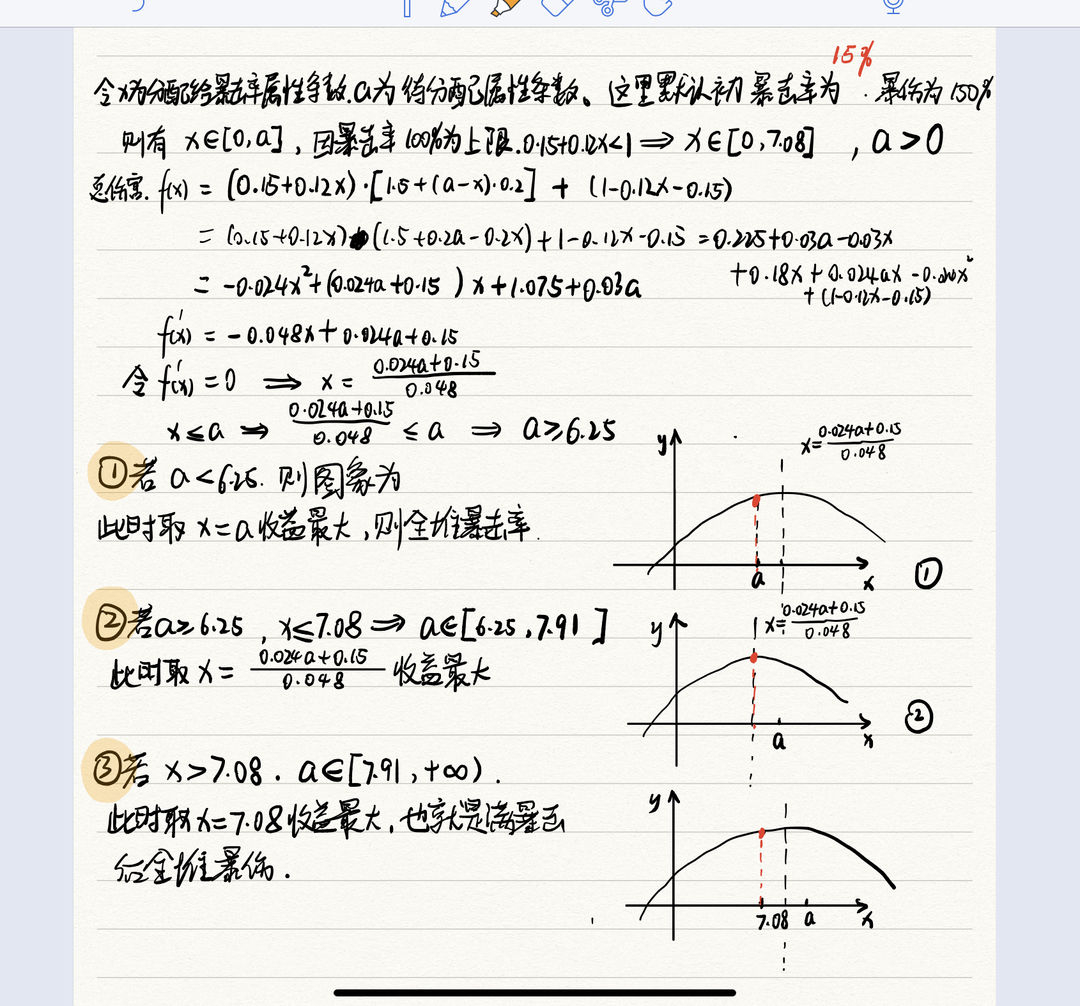 15%
令x为分配给暴击率属性条数,a为待分配属性条数、这里默认初暴击率为 .暴伤为150%
则有 x∈[0,a], 因暴击率100%为上限.0.15+0.12x<1 ⇒ x∈[0,7.08] , a>0
总伤害. f(x) = (0.15+0.12x)·[1.5+(a-x)·0.2] + (1-0.12x-0.15)
= (0.15+0.12x)(1.5+0.2a-0.2x)+1-0.12x-0.15 =0.225+0.03a-0.03x
+0.18x+0.024ax-0.024x²
+(1-0.12x-0.15)
= -0.024x²+(0.024a+0.15)x+1.075+0.03a
f'(x) = -0.048x+0.024a+0.15
令 f'(x)=0 ⇒ x= (0.024a+0.15)/0.048
x≤a ⇒ (0.024a+0.15)/0.048 ≤ a ⇒ a≥6.25
①若 a<6.25. 则图象为
此时取 x=a 收益最大,则全堆暴击率.
y
x=(0.024a+0.15)/0.048
a
x
①
②若a≥6.25 , x≤7.08 ⇒ a∈[6.25,7.91]
此时取 x= (0.024a+0.15)/0.048 收益最大
y
x=(0.024a+0.15)/0.048
a
x
②
③若 x>7.08 . a∈[7.91,+∞).
此时取x=7.08收益最大,也就是满暴击
后全堆暴伤.
y
7.08
a
x